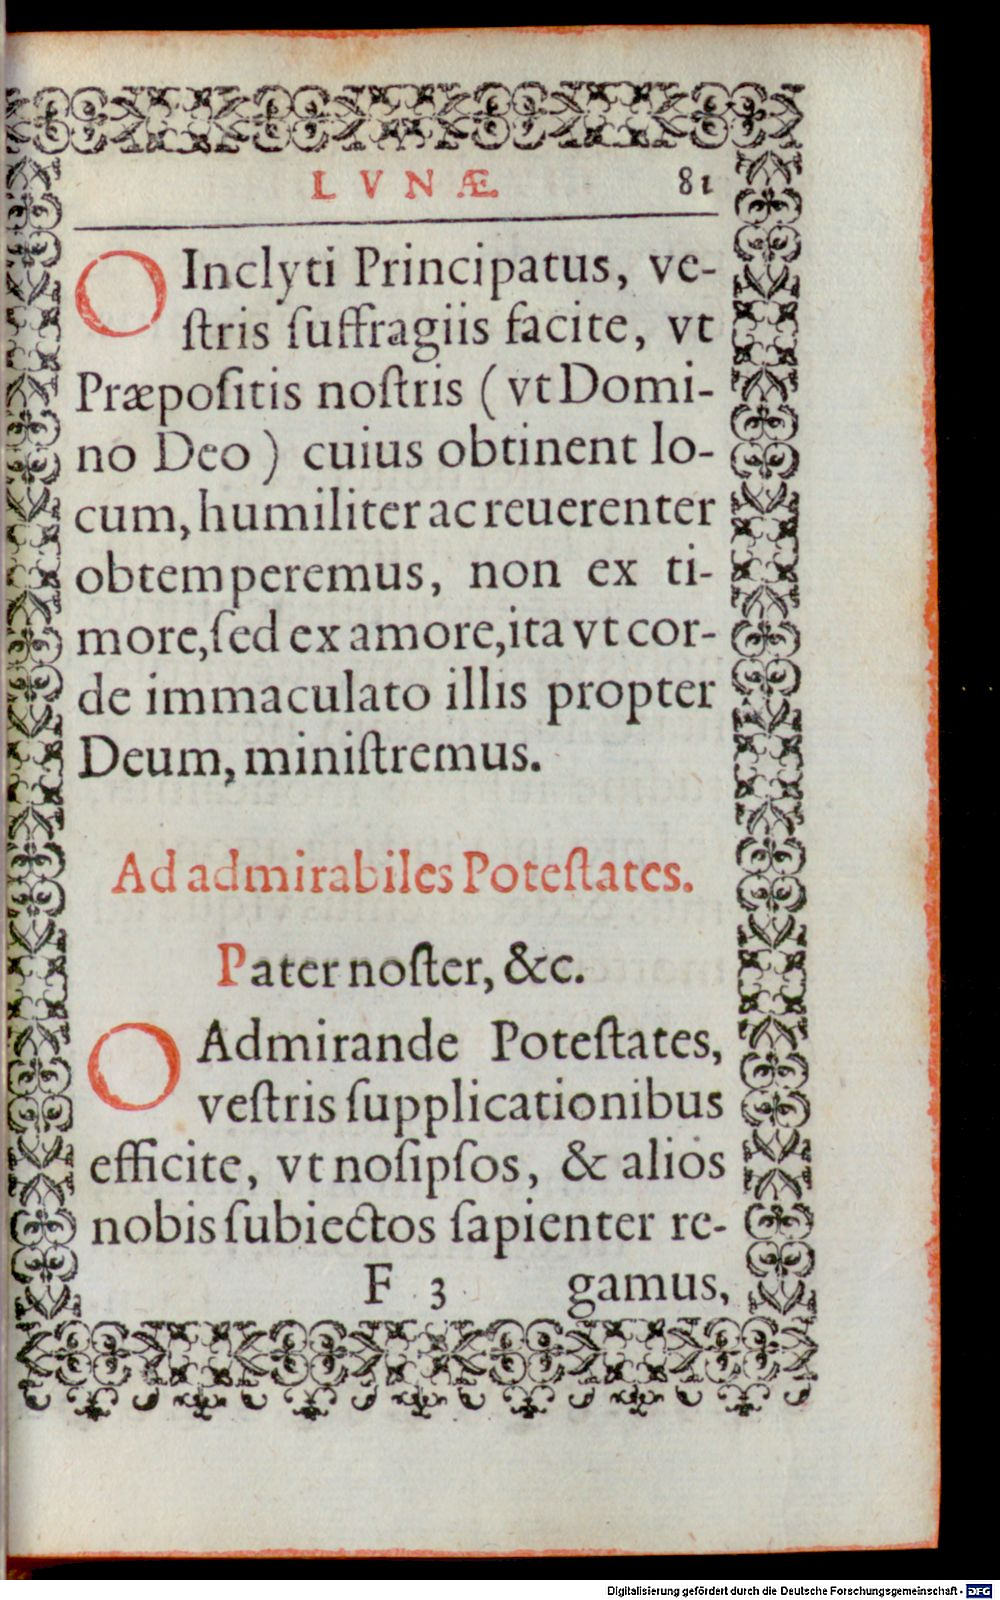 LVNÆ. 81
O Inclyti Principatus, ve-
ſtris ſuffragiis facite, vt
Præpoſitis noſtris (vt Domi-
no Deo) cuius obtinent lo-
cum, humiliter ac reuerenter
obtemperemus, non ex ti-
more, ſed ex amore, ita vt cor-
de immaculato illis propter
Deum, miniſtremus.
Ad admirabiles Poteſtates.
Pater noſter, &c.
O Admirande Poteſtates,
veſtris ſupplicationibus
efficite, vt noſipſos, & alios
nobis ſubiectos ſapienter re-
F 3 gamus,
Digitalisierung gefördert durch die Deutsche Forschungsgemeinschaft - DFG